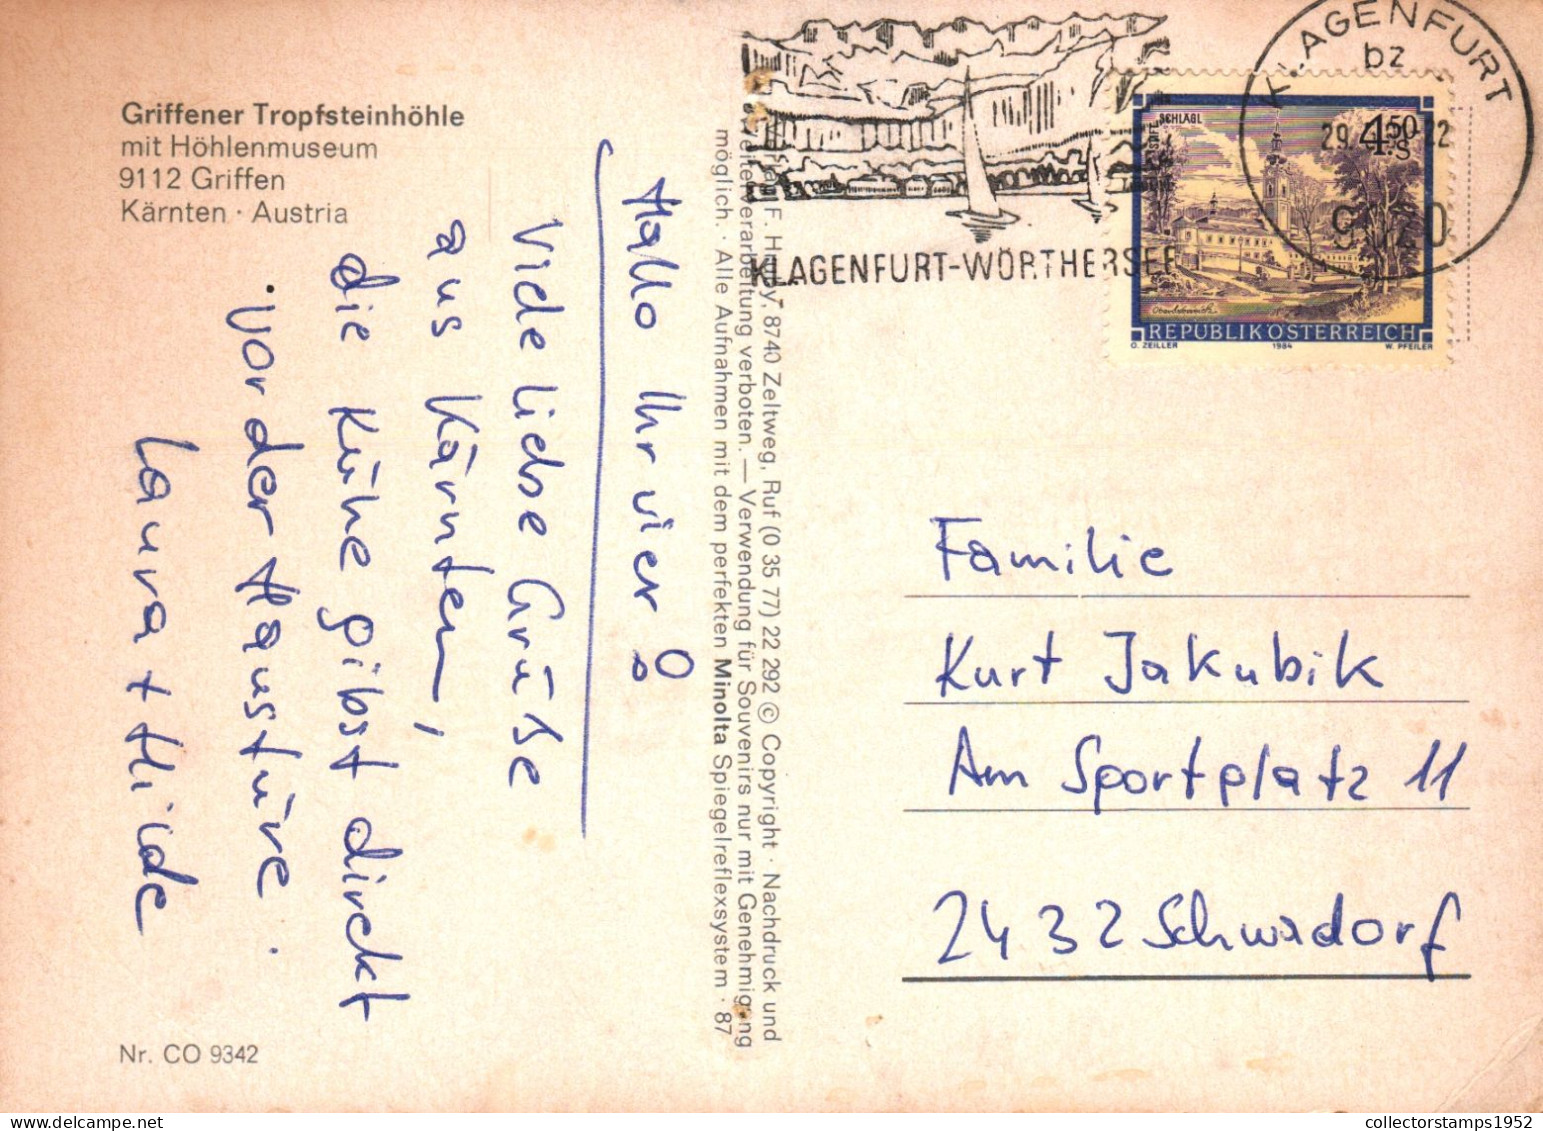 Griffener Tropfsteinhöhle
mit Höhlenmuseum
9112 Griffen
Kärnten · Austria
Hallo Ihr vier!
Viele liebe Grüße
aus Kärnten,
die Kühe gibst direkt
vor der Haustüre.
Laura + Hilde
Nr. CO 9342
F. H y, 8740 Zeltweg, Ruf (0 35 77) 22 292 © Copyright · Nachdruck und
Weiterverarbeitung verboten. — Verwendung für Souvenirs nur mit Genehmigung
möglich. · Alle Aufnahmen mit dem perfekten Minolta Spiegelreflexsystem · 87
KLAGENFURT-WÖRTHERSEE
KLAGENFURT
bz
29.
9020
STIFT
SCHLÄGL
4.50
S
REPUBLIK ÖSTERREICH
O. ZEILLER 1984 W. PFEILER
Familie
Kurt Jakubik
Am Sportplatz 11
2432 Schwadorf
collectorstamps1952